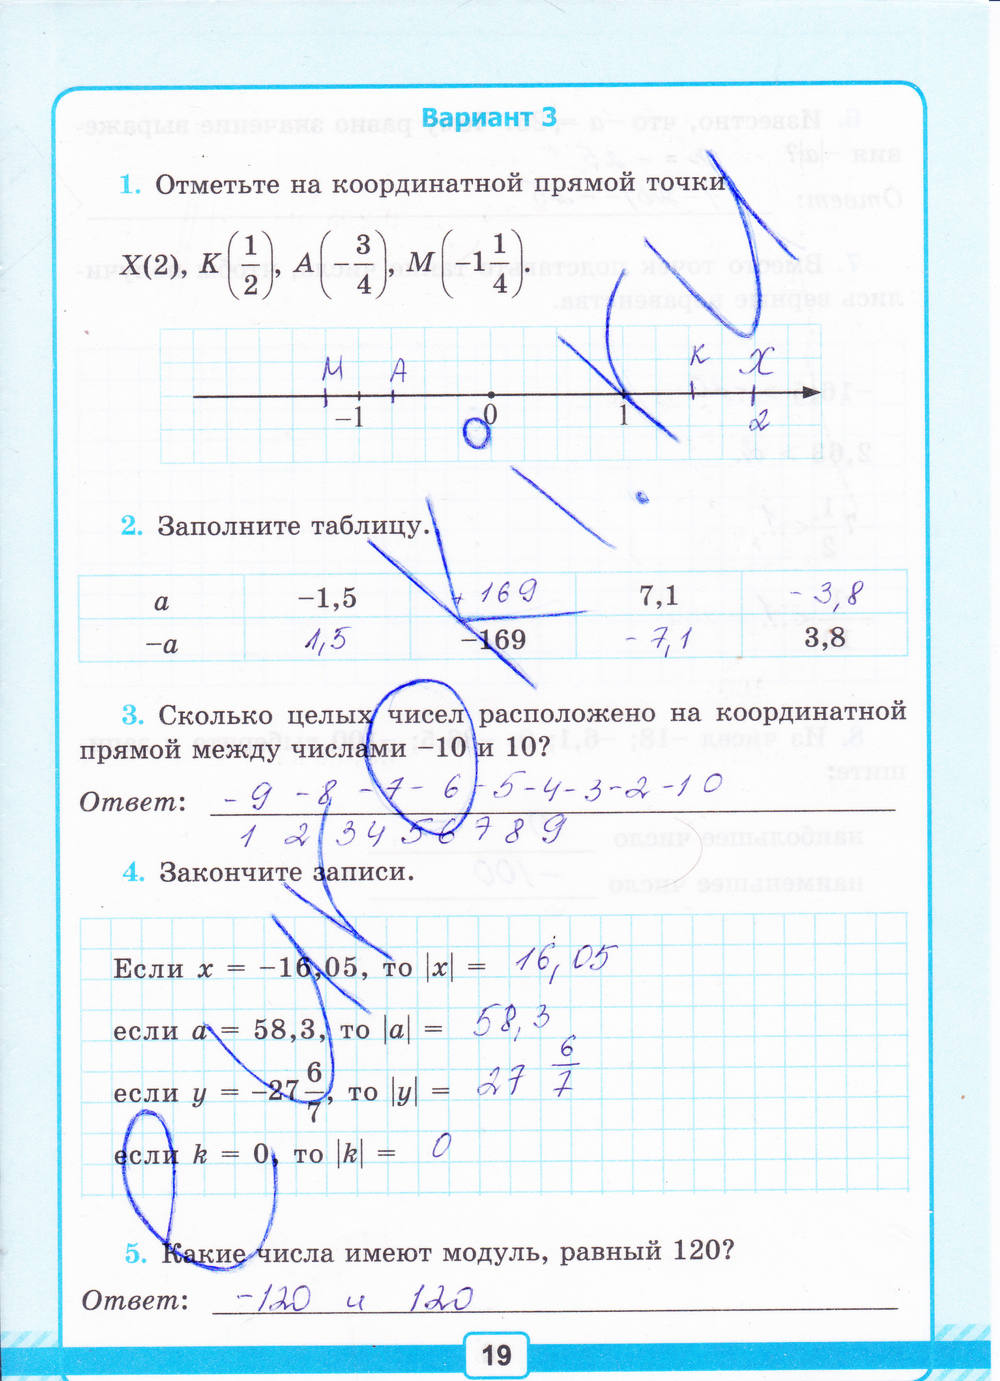 Вариант 3
1. Отметьте на координатной прямой точки
X(2), K(1/2), A(−3/4), M(−1 1/4).
M A K X
−1 0 1 2
2. Заполните таблицу.
a −1,5 +169 7,1 −3,8
−a 1,5 −169 −7,1 3,8
3. Сколько целых чисел расположено на координатной
прямой между числами −10 и 10?
Ответ: −9 −8 −7 −6 −5 −4 −3 −2 −1 0
1 2 3 4 5 6 7 8 9
4. Закончите записи.
Если x = −16,05, то |x| = 16,05
если a = 58,3, то |a| = 58,3
если y = −27 6/7, то |y| = 27 6/7
если k = 0, то |k| = 0
5. Какие числа имеют модуль, равный 120?
Ответ: −120 и 120
19